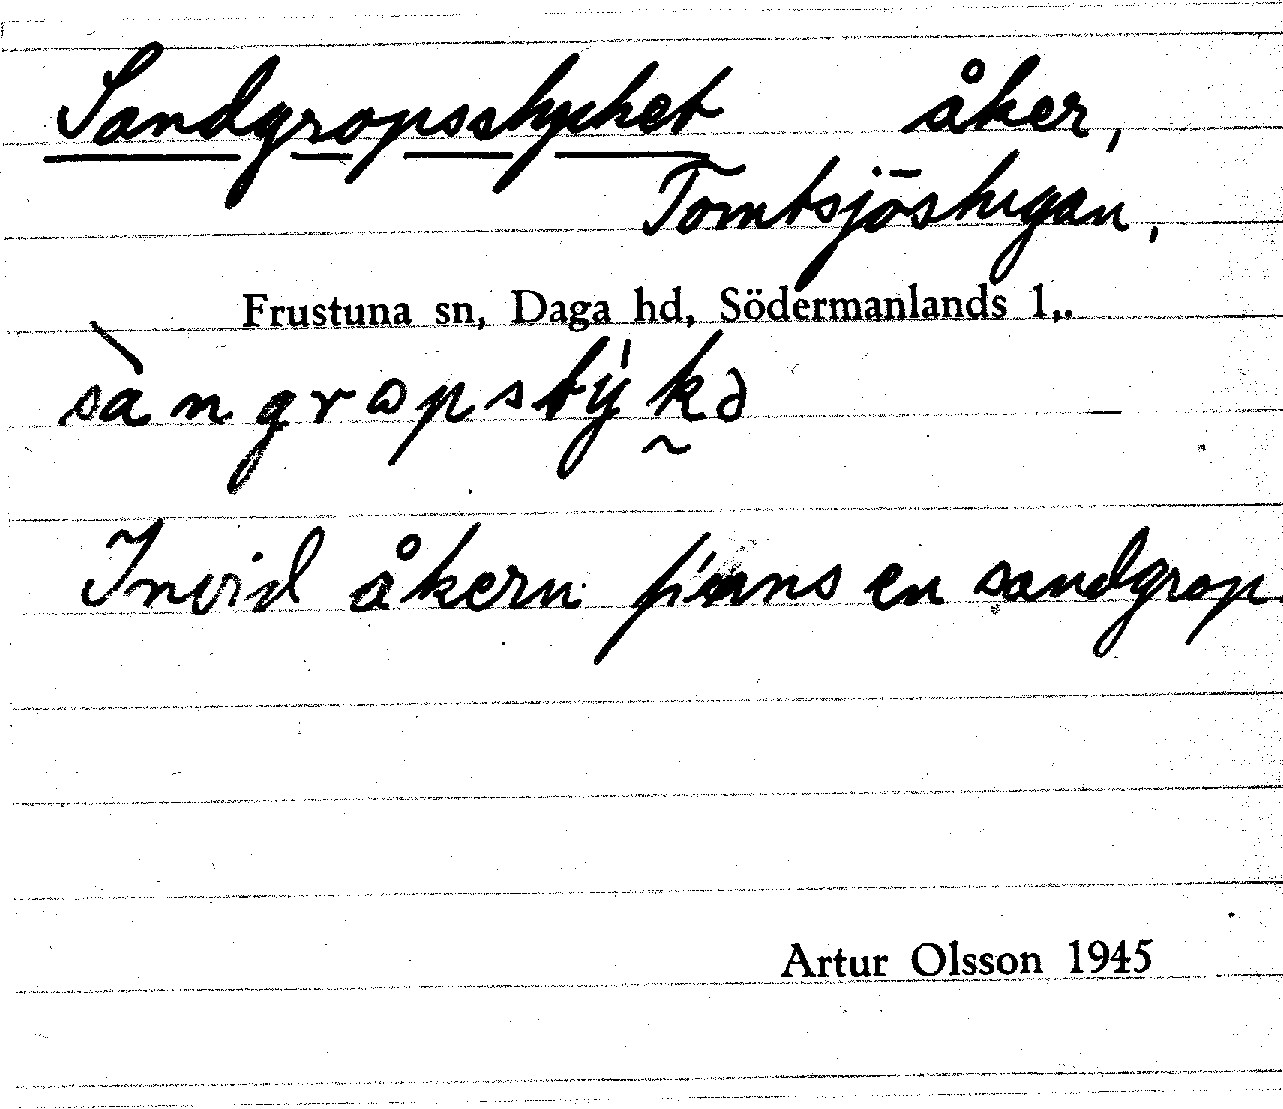 Sandgropsstycket åker,
Tomtsjöstugan,
Frustuna sn, Daga hd, Södermanlands l,.
Invid åkern finns en sandgrop.
Artur Olsson 1945